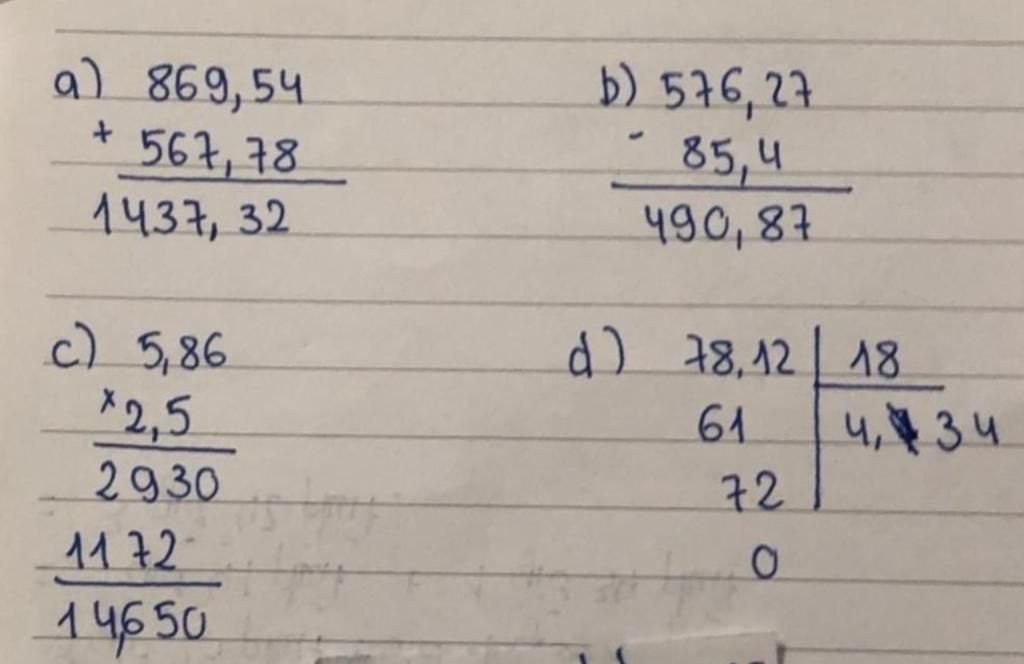 a) 869,54
+ 567,78
1437,32
b) 576,27
- 85,4
490,87
c) 5,86
x 2,5
2930
1172
14,650
d) 78,12 | 18
61 4,34
72
0